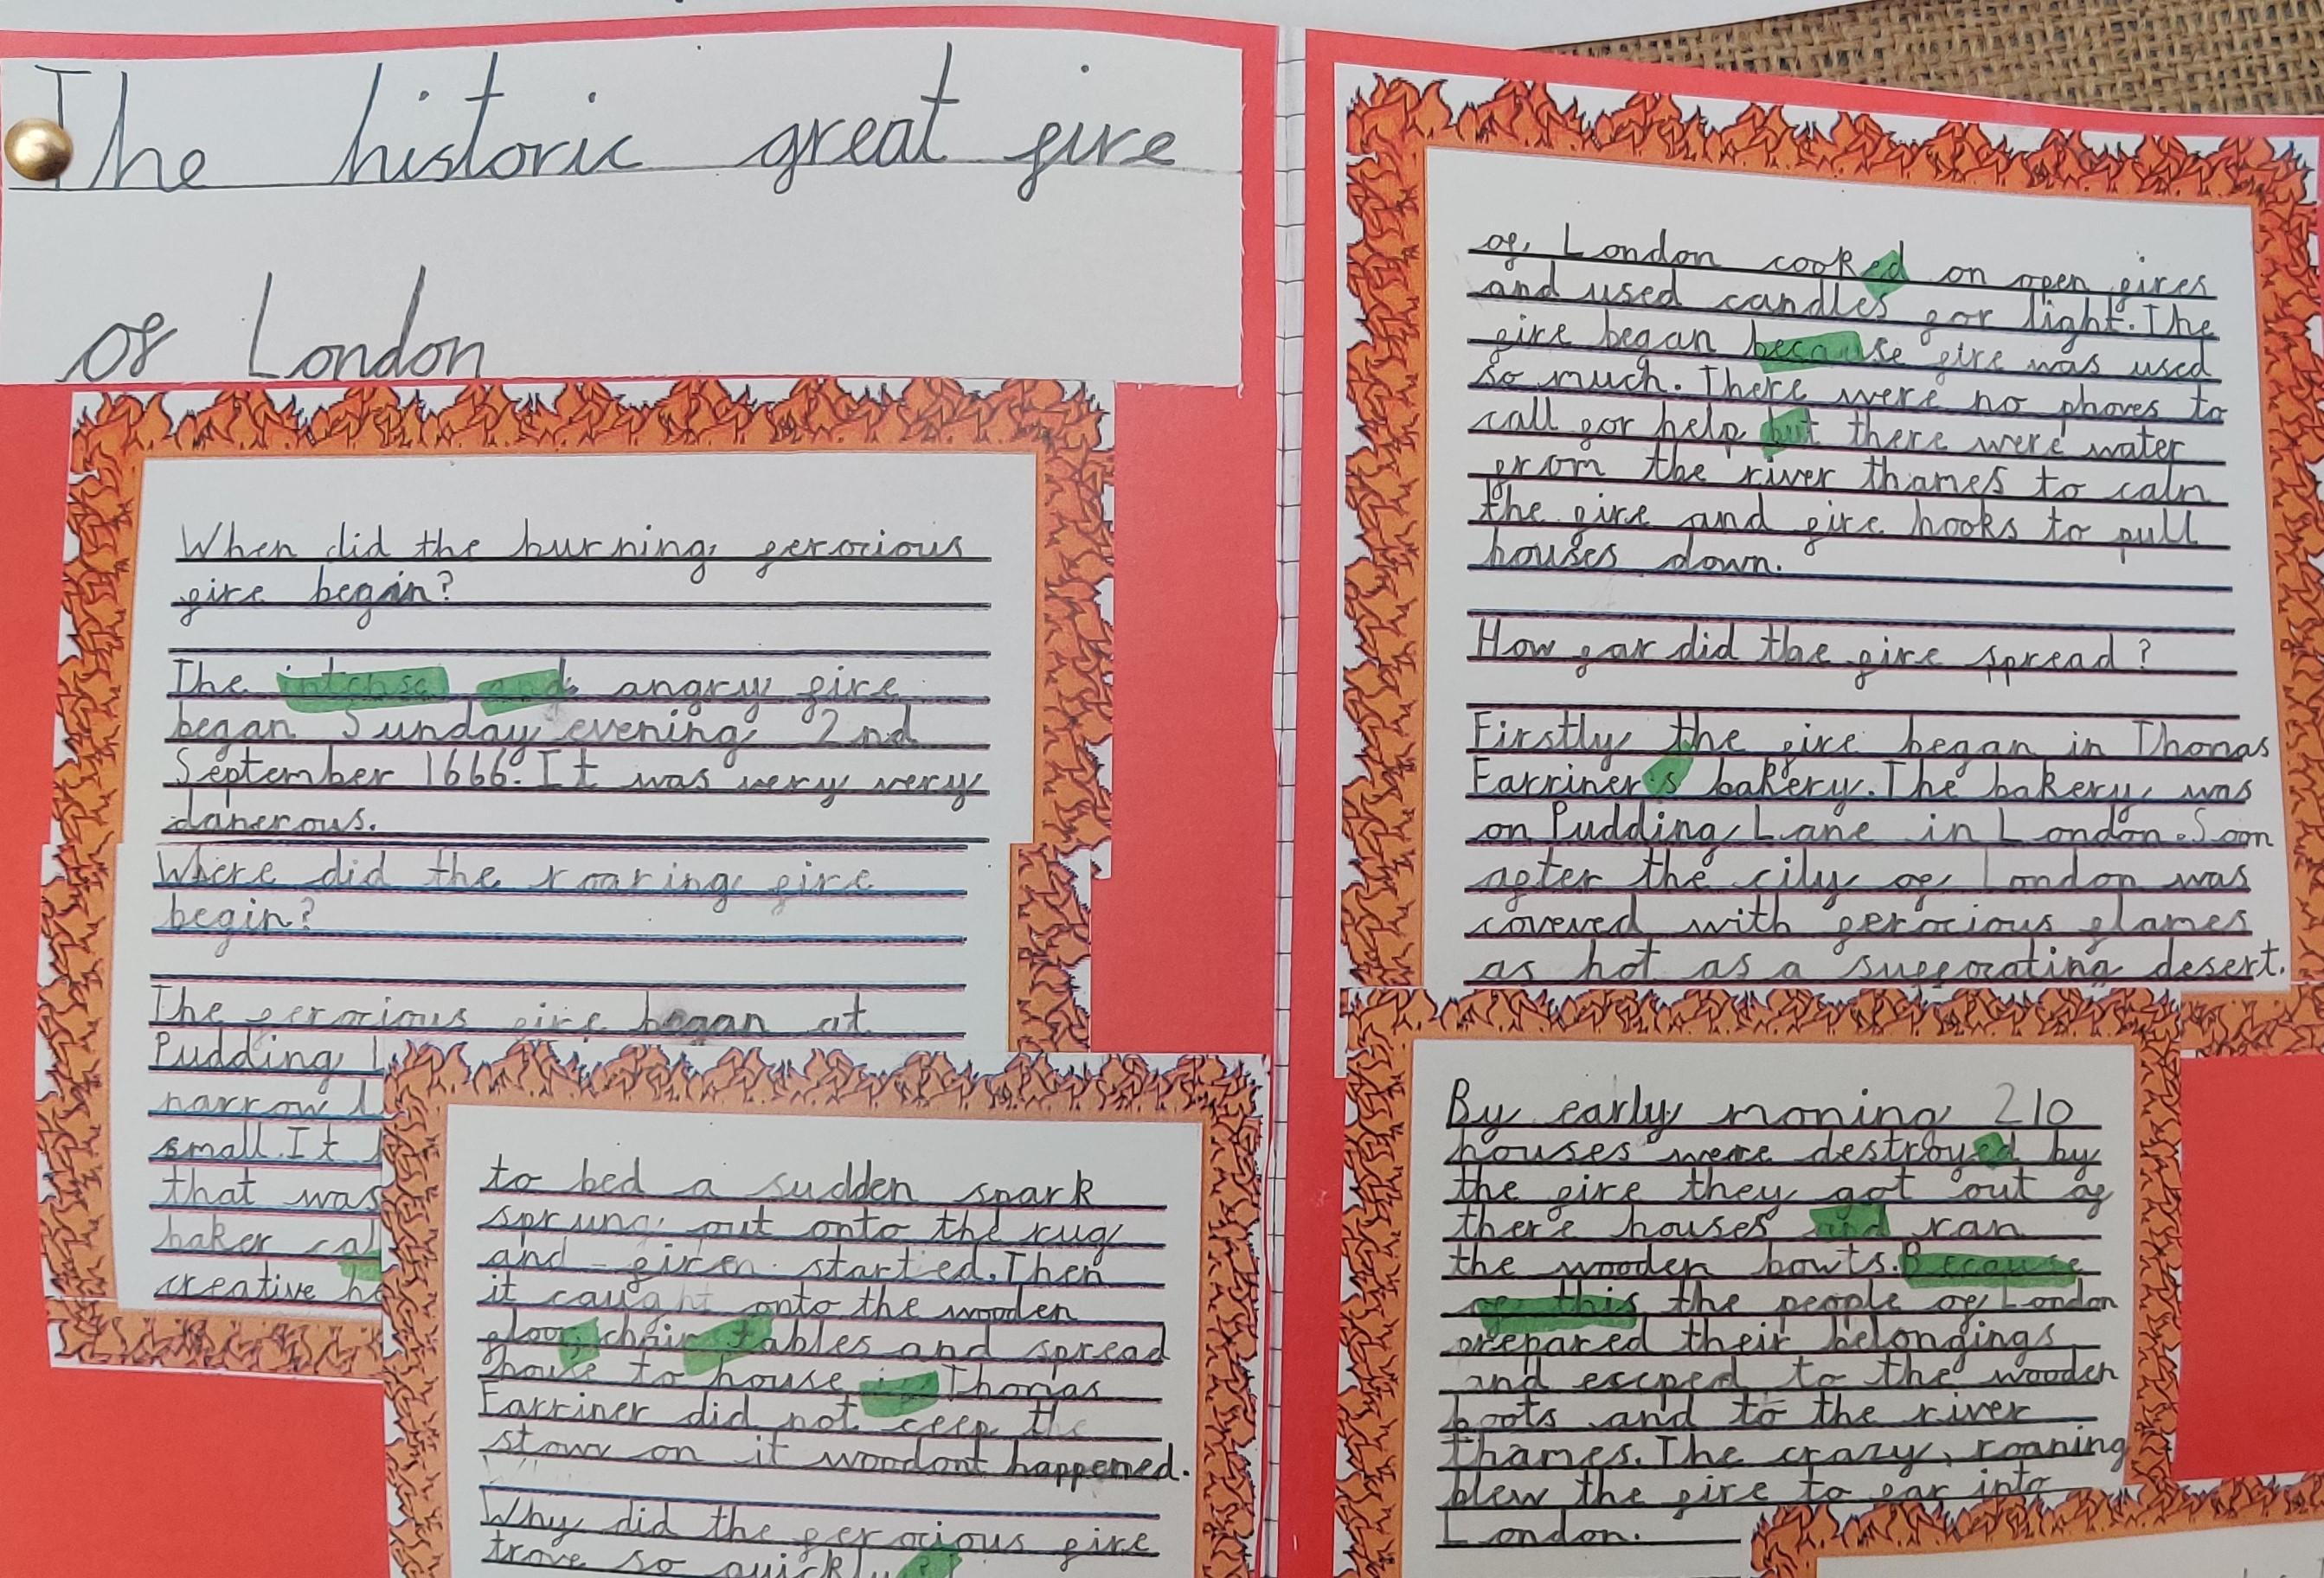 The historic great fire
of London
When did the burning ferocious
fire begin?
The intense and angry fire
began Sunday evening 2nd
September 1666. It was very very
danerous.
Where did the roaring fire
begin?
The ferocious fire began at
Pudding
narrow
small. It
that was
baker
creative
to bed a sudden spark
sprung out onto the rug
and firen started. Then
it caught onto the wooden
floor, chair, tables and spread
house to house if Thomas
Farriner did not ceep the
stove on it woodont happened.
Why did the ferocious fire
trove so quickly?
of London cooked on open fires
and used candles for light. The
fire began because fire was used
so much. There were no phoves to
call for help but there were water
from the river thames to caln
the fire and fire hooks to pull
houses down.
How far did the fire spread?
Firstly the fire began in Thomas
Farriner's bakery. The bakery was
on Pudding Lane in London. Soon
after the city of London was
covered with ferocious flames
as hot as a sufforating desert.
By early moning 210
houses were destroyed by
the fire they got out of
there houses and ran
the wooden bowts. Because
of this the people of London
prepared their belongings
and escped to the wooden
boots and to the river
thames. The crazy, roaning
blew the fire to far into
London.